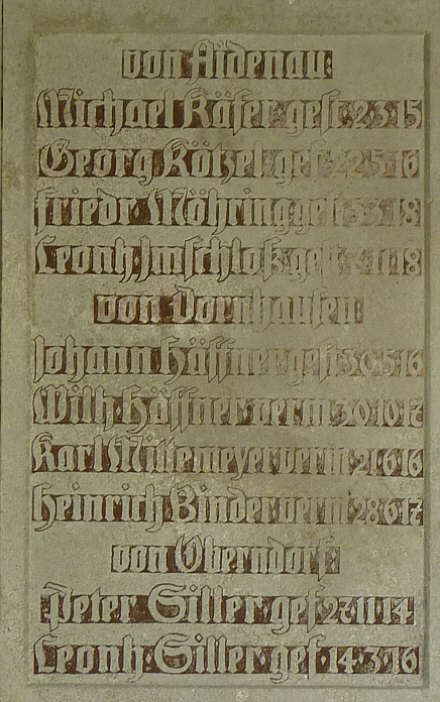 von Aidenau:
Michael Käfer gest. 2·3·15
Georg Kötzel· gef. 22·5·16
Friedr. Möhring gest. 18
Leonh. Imschloß· gest. 11·18
von Dornhausen:
Johann Höffner gest. 30·5·16
Wilh. Höffner verm. 30·10·17
Karl Mittemeyer verm. 21·6·16
Heinrich Binder verm. 28·6·17
von Oberndorf:
Peter Siller· gef. 27·11·14
Leonh· Siller· gef. 14·3·16